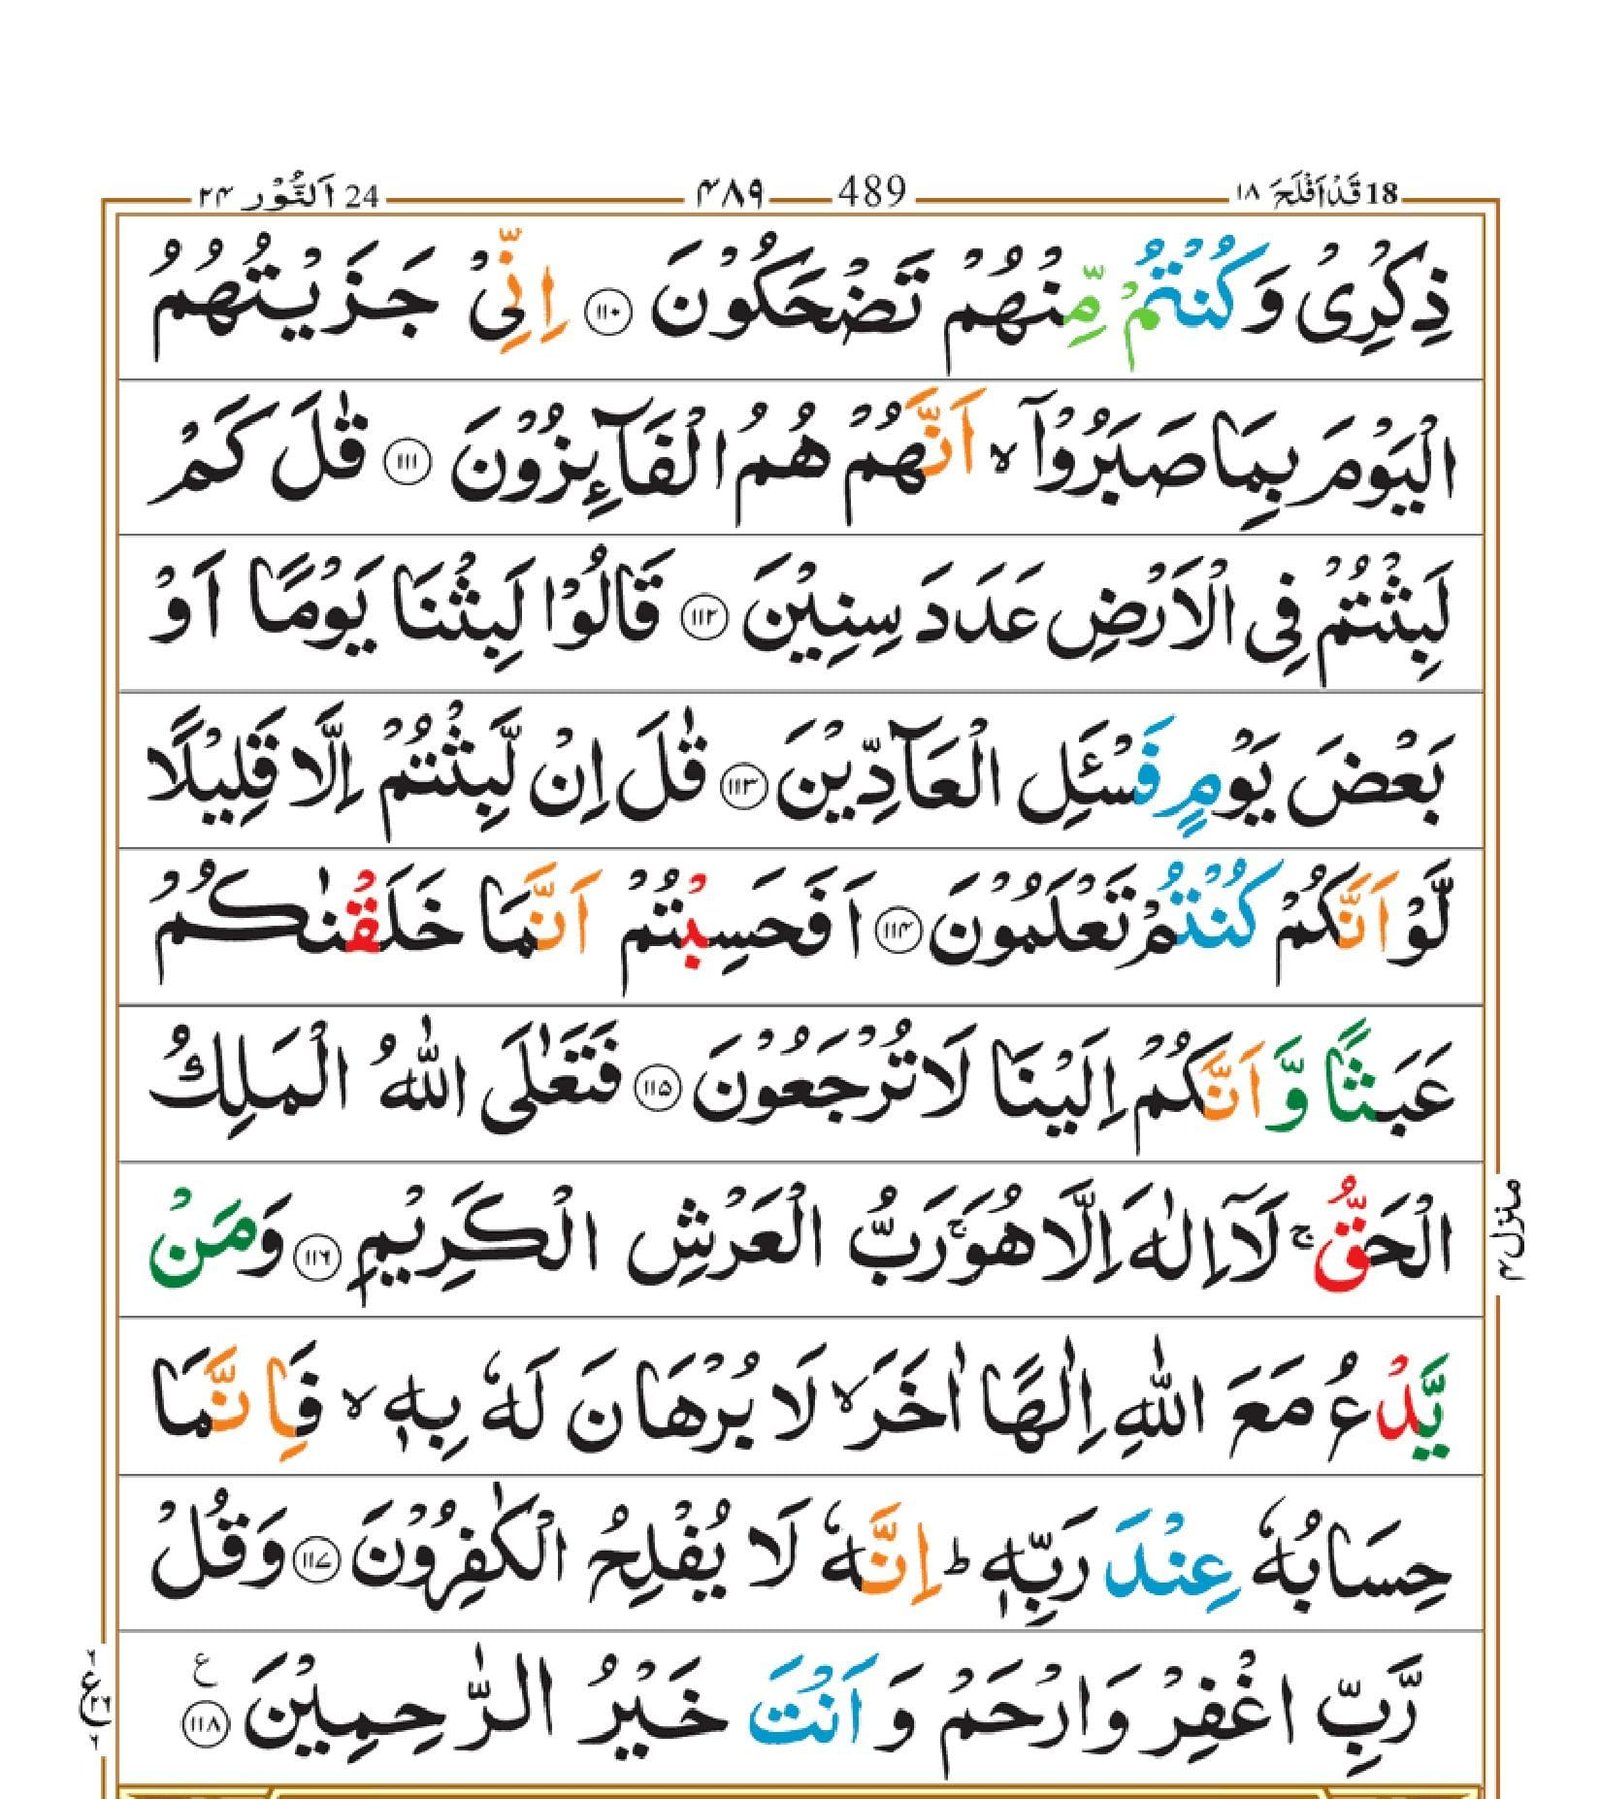 18 قَدْاَفْلَحَ ۱۸ 489 ۴۸۹ 24 اَلنُّوْر ۲۴
ذِكْرِىْ وَكُنْتُمْ مِّنْهُمْ تَضْحَكُوْنَ ۝۱۱۰ اِنِّىْ جَزَيْتُهُمُ
الْيَوْمَ بِمَا صَبَرُوْۤا ۙ اَنَّهُمْ هُمُ الْفَآئِزُوْنَ ۝۱۱۱ قٰلَ كَمْ
لَبِثْتُمْ فِى الْاَرْضِ عَدَدَ سِنِيْنَ ۝۱۱۲ قَالُوْا لَبِثْنَا يَوْمًا اَوْ
بَعْضَ يَوْمٍ فَسْـَٔلِ الْعَآدِّيْنَ ۝۱۱۳ قٰلَ اِنْ لَّبِثْتُمْ اِلَّا قَلِيْلًا
لَّوْ اَنَّكُمْ كُنْتُمْ تَعْلَمُوْنَ ۝۱۱۴ اَفَحَسِبْتُمْ اَنَّمَا خَلَقْنٰكُمْ
عَبَثًا وَّاَنَّكُمْ اِلَيْنَا لَا تُرْجَعُوْنَ ۝۱۱۵ فَتَعٰلَى اللّٰهُ الْمَلِكُ
الْحَقُّ ۚ لَاۤ اِلٰهَ اِلَّا هُوَ ۚ رَبُّ الْعَرْشِ الْكَرِيْمِ ۝۱۱۶ وَمَنْ
يَّدْعُ مَعَ اللّٰهِ اِلٰهًا اٰخَرَ ۙ لَا بُرْهَانَ لَهٗ بِهٖ ۙ فَاِنَّمَا
حِسَابُهٗ عِنْدَ رَبِّهٖ ؕ اِنَّهٗ لَا يُفْلِحُ الْكٰفِرُوْنَ ۝۱۱۷ وَقُلْ
رَّبِّ اغْفِرْ وَارْحَمْ وَاَنْتَ خَيْرُ الرّٰحِمِيْنَ ۝۱۱۸ ع
منزل ۴
۶ ع ۲۶ ۶